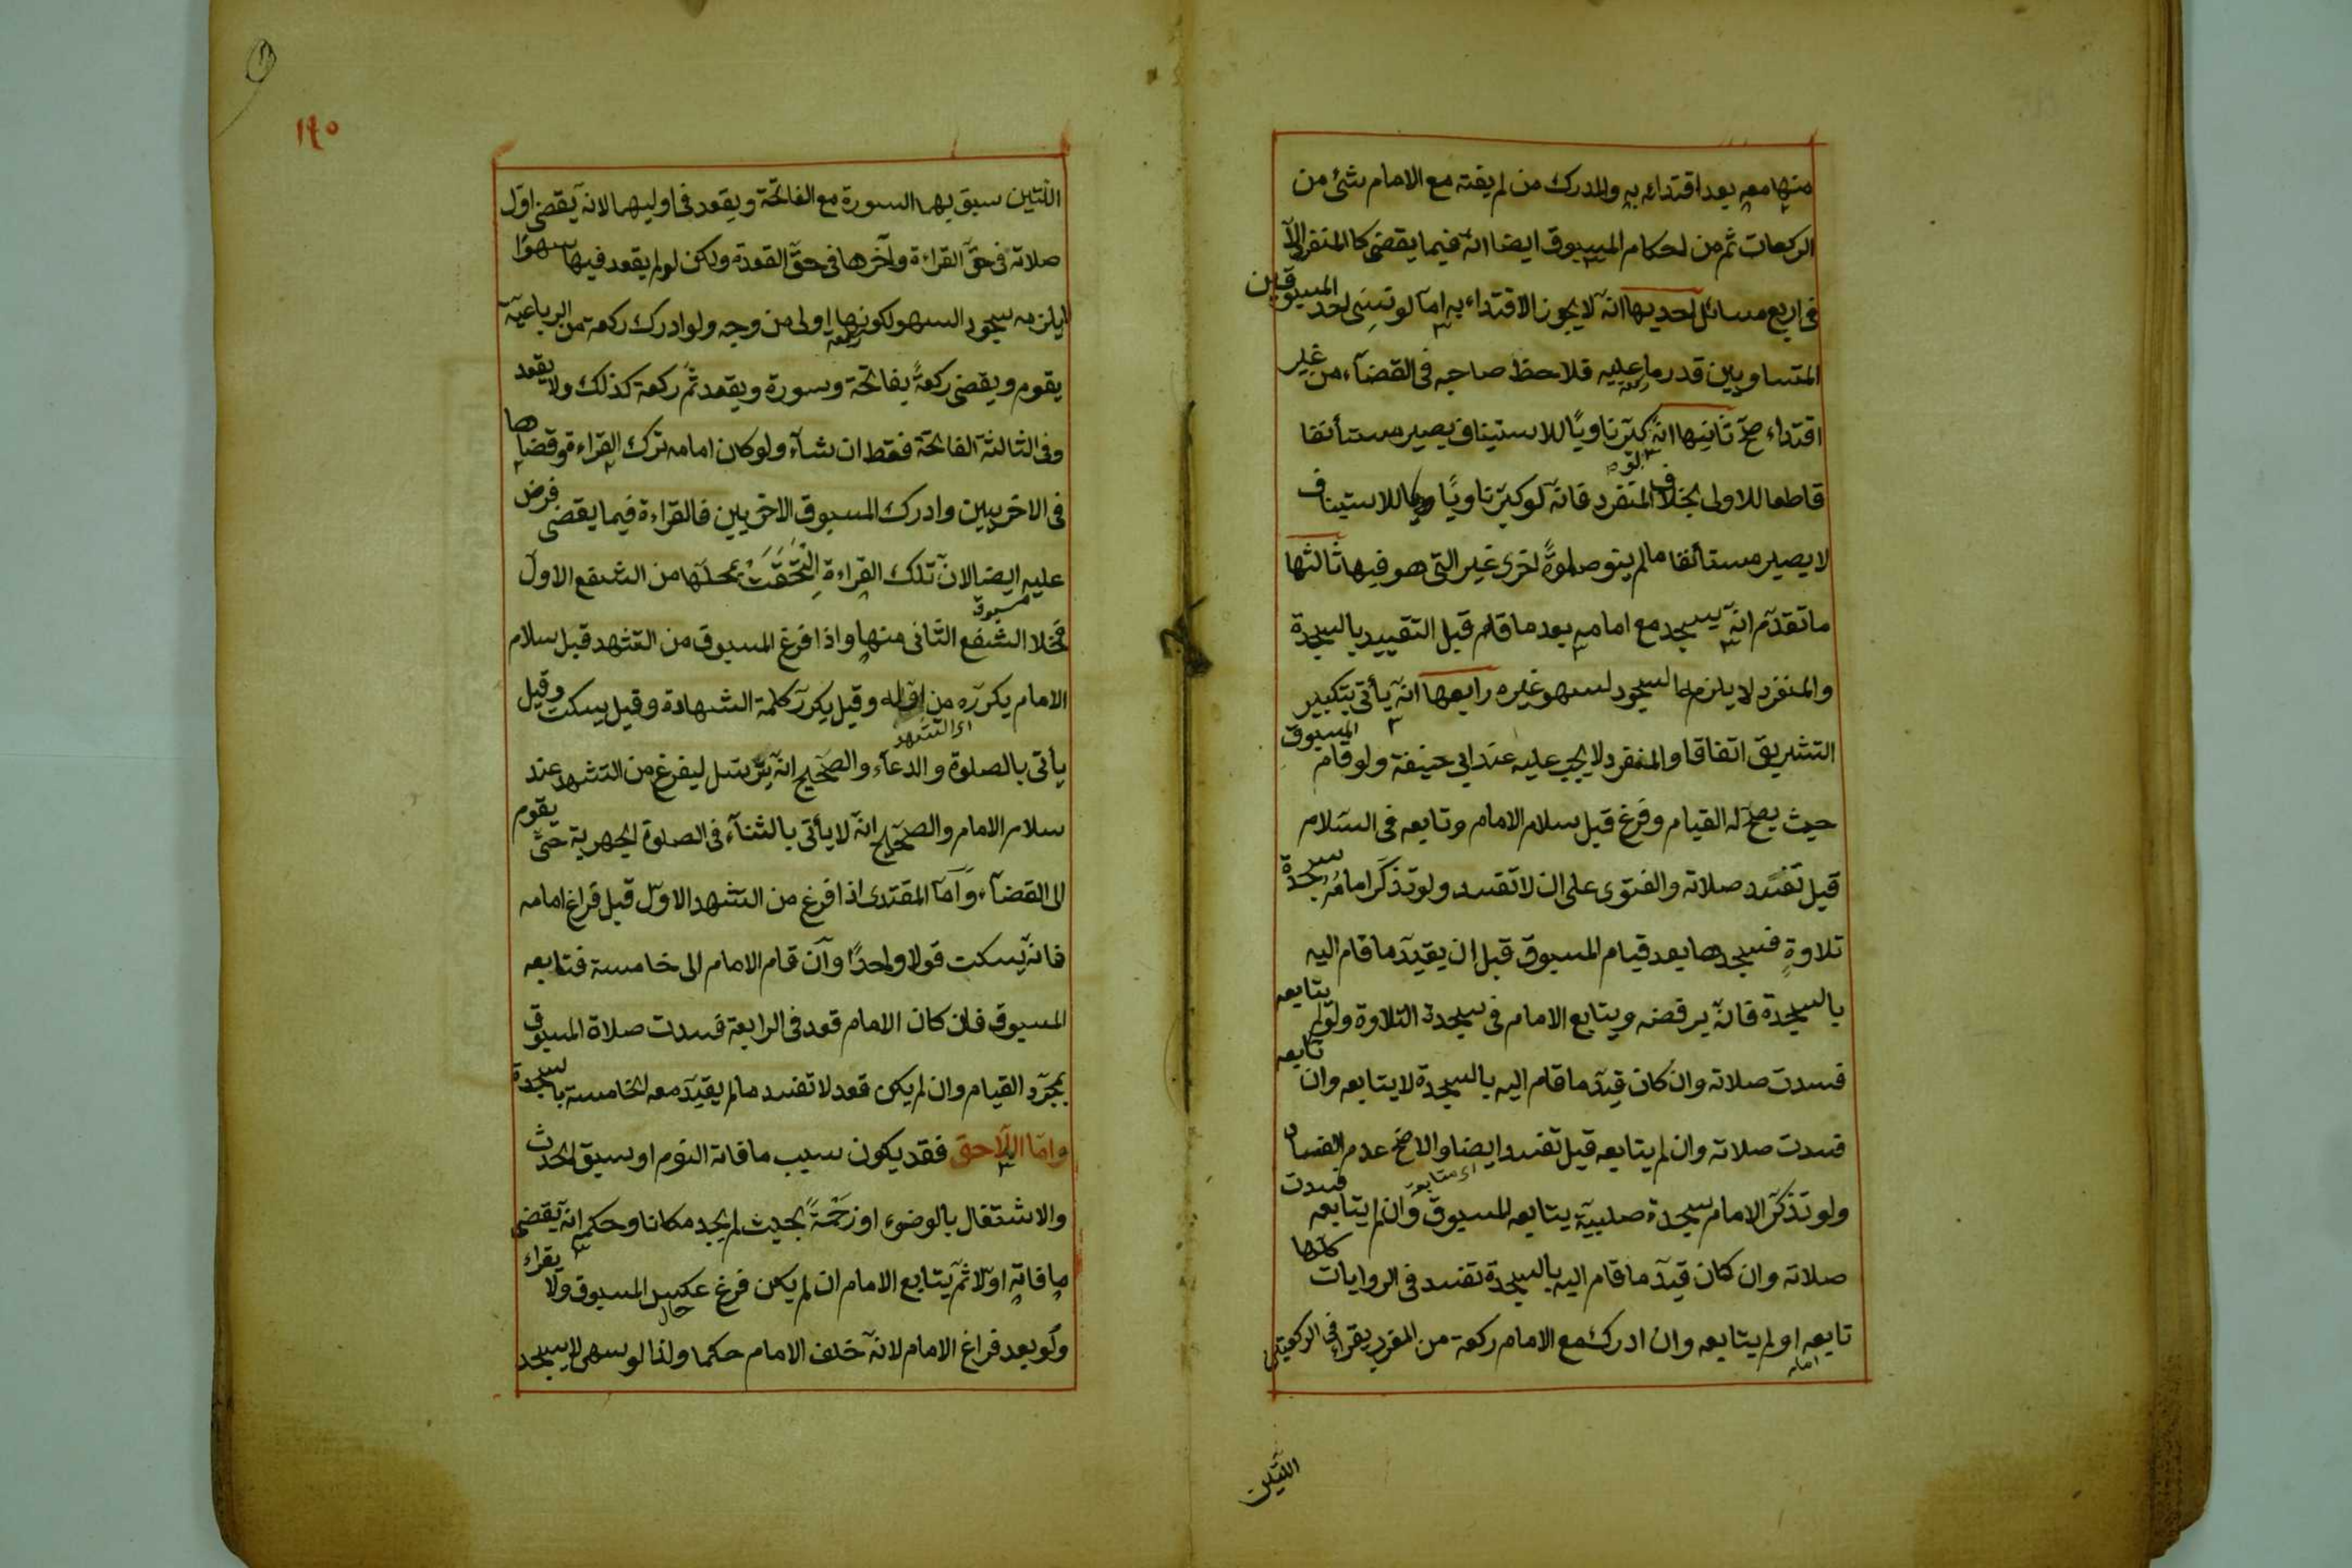 منها معه بعد اقتدائه به والمدرك من لم يفته مع الامام شئ من
الركعات ثم من احكام المسبوق ايضا انه فيما يقضى كالمنفرد الا
فى اربع مسائل احديها انه لا يجوز الاقتداء به اما لو نسى احد المسبوقين
المتساويين قدر ما عليه فلاحظ صاحبه فى القضآء من غير
اقتداء صح ثانيها انه كبّر ناويًا للاستيناف يصير مستأنفا
قاطعا للاولى بخلاف المنفرد فانه لو كبّر ناويًا للاستيناف
لا يصير مستأنفا ما لم ينو صلوةً اخرى غير التى هو فيها ثالثها
ما تقدّم انه يسجد مع امامه بعد ما قام قبل التقييد بالسجدة
والمنفرد لا يلزمه السجود لسهو غيره رابعها انه يأتى بتكبير
التشريق اتفاقا والمنفرد لا يجب عليه عند ابى حنيفة ولو قام المسبوق
حيث يصحّ له القيام وفرغ قبل سلام الامام وتابعه فى السّلام
قيل تفسد صلاته والفتوى على ان لا تفسد ولو تذكّر امامُه سجدة
تلاوةٍ فسجدها بعد قيام المسبوق قبل ان يقيّد ما قام اليه
بالسجدة فانّه يرفضه ويتابع الامام فى سجدة التلاوة ولو لم يتابعه
فسدت صلاته وان كان قيّد ما قام اليه بالسجدة لا يتابعه وان تابعه
فسدت صلاته وان لم يتابعه قيل تفسد ايضا والاصح عدم الفساد
ولو تذكّر الامام سجدة صلبيّة يتابعه المسبوق وان لم يتابعه فسدت
صلاته وان كان قيّد ما قام اليه بالسجدة تفسد فى الروايات كلها
تابعه او لم يتابعه وان ادرك مع الامام ركعة من المغرب يقرأ فى الركعتين
اللتين
١٩٠
اللتين سبق بهما السورة مع الفاتحة ويقعد فى اوليهما لانه يقضى اوّل
صلاته فى حقّ القراءة وآخرها فى حقّ القعدة ولكن لو لم يقعد فيها سهوًا
لا يلزمه سجود السهو لكونها اولى من وجه ولو ادرك ركعة من الرباعيّة
يقوم ويقضى ركعةً بفاتحة وسورة ويقعد ثمّ ركعة كذلك ولا يقعد
وفى الثالثة الفاتحة فقط ان شآء ولو كان امامه ترك القراءة وقضاها
فى الاخريين وادرك المسبوق الاخريين فالقراءة فيما يقضى فرض
عليه ايضا لان تلك القراءة التحقت بمحلّها من الشفع الاول
فخلا الشفع الثانى منها واذا فرغ المسبوق من التشهد قبل سلام
الامام يكرره من اوله وقيل يكرّر كلمة الشهادة وقيل يسكت وقيل
يأتى بالصلوة والدعآء والصحيح انه يترسّل ليفرغ من التشهد عند
سلام الامام والصحيح انه لا يأتى بالثنآء فى الصلوة الجهرية حتّى يقوم
الى القضآء وامّا المقتدى اذا فرغ من التشهد الاوّل قبل فراغ امامه
فانه يسكت قولا واحدًا وان قام الامام الى خامسة فتابعه
المسبوق فان كان الامام قعد فى الرابعة فسدت صلاة المسبوق
بمجرّد القيام وان لم يكن قعد لا تفسد ما لم يقيّد معه الخامسة بالسجدة
وامّا اللّاحق فقد يكون سبب ما فاته النوم او سبق الحدث
والاشتغال بالوضوء او زحمةً بحيث لم يجد مكانا وحكمه انه يقضى
ما فاته اوّلا ثمّ يتابع الامام ان لم يكن فرغ عكس المسبوق ولا يقراء
ولو بعد فراغ الامام لانه خلف الامام حكما ولذا لو سهى لا يسجد